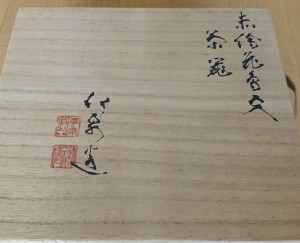 赤絵花鳥文
茶碗
竹泉造